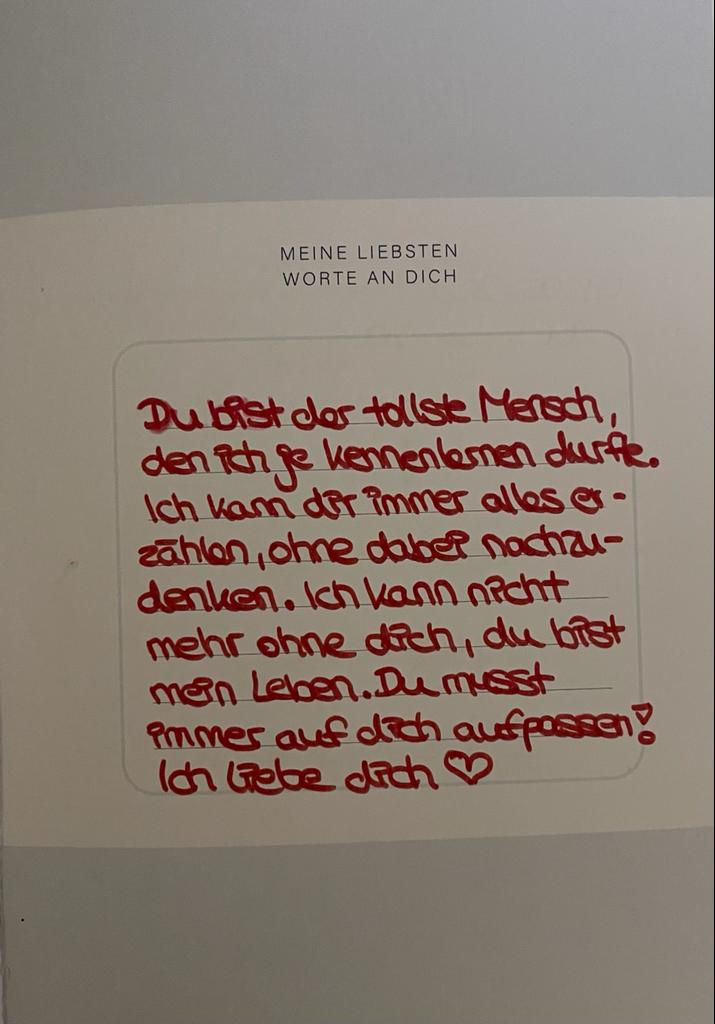 MEINE LIEBSTEN
WORTE AN DICH
Du bist der tollste Mensch,
den ich je kennenlernen durfte.
Ich kann dir immer alles er-
zählen, ohne dabei nachzu-
denken. Ich kann nicht
mehr ohne dich, du bist
mein Leben. Du musst
immer auf dich aufpassen!
Ich liebe dich ♡